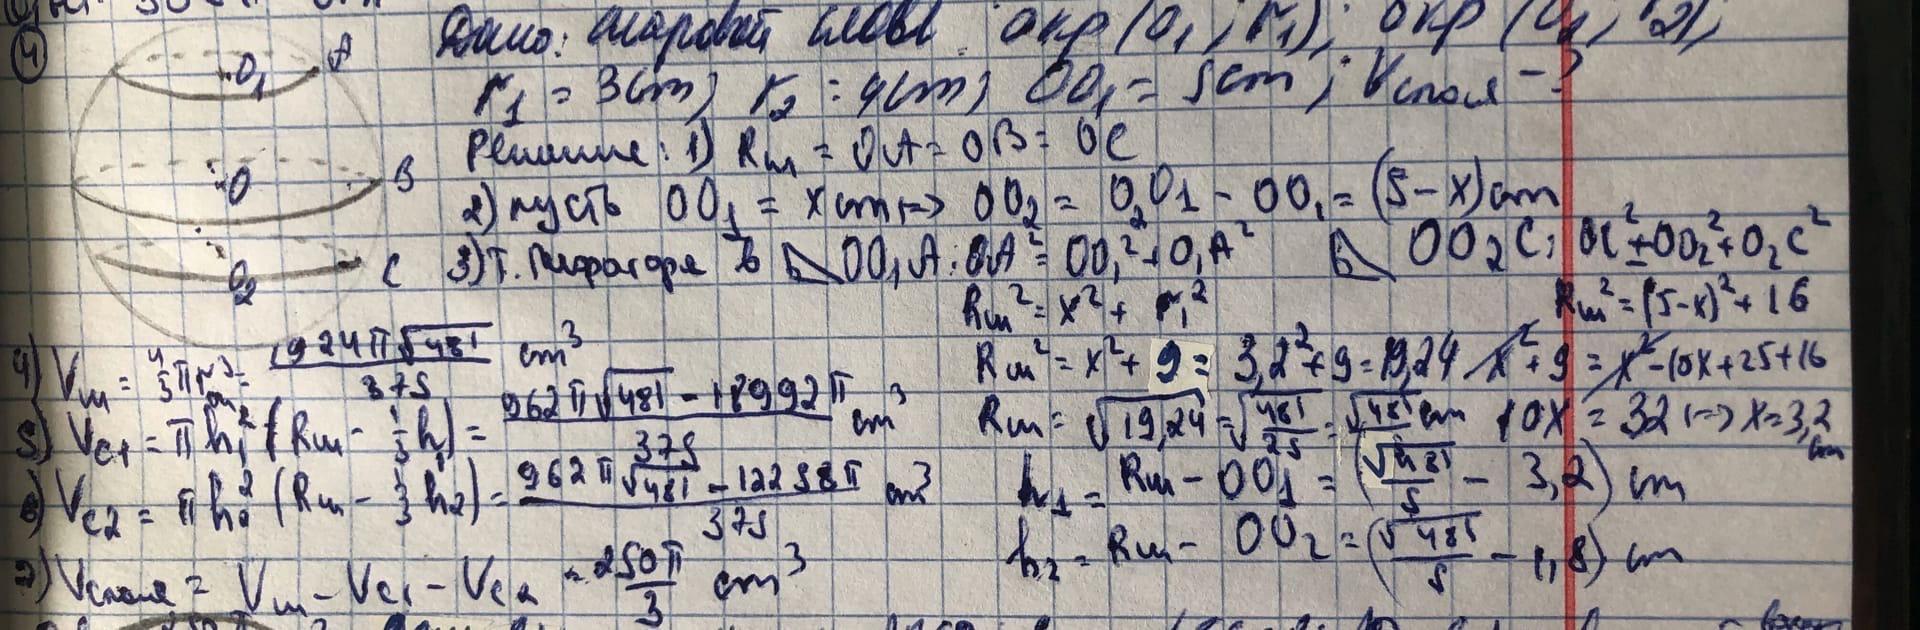 4
Дано: шаровой слой. окр (O₁; r₁); окр (O₂; r₂);
r₁ = 3 cm; r₂ = 4 cm; OO₁ = 5 cm; Vслоя - ?
Решение: 1) Rш = OA = OB = OC
2) пусть OO₁ = x cm |=> OO₂ = O₂O₁ - OO₁ = (5-x) cm
3) Т. Пифагора в △OO₁A: OA² = OO₁² + O₁A² △OO₂C: OC² = OO₂² + O₂C²
Rш² = x² + r₁² Rш² = (5-x)² + 16
Rш² = x² + 9 = 3,2² + 9 = 19,24 x² + 9 = x² - 10x + 25 + 16
Rш = √19,24 = √(481/25) = √481/5 cm 10x = 32 |=> x = 3,2 cm
h₁ = Rш - OO₁ = (√481/5 - 3,2) cm
h₂ = Rш - OO₂ = (√481/5 - 1,8) cm
4) Vш = 4/3 πRш³ = 1924π√481/375 cm³
5) Vc1 = πh₁² (Rш - 1/3 h₁) = (962π√481 - 18992π)/375 cm³
6) Vc2 = πh₂² (Rш - 1/3 h₂) = (962π√481 - 12258π)/375 cm³
7) Vслоя = Vш - Vc1 - Vc2 = 250π/3 cm³
A
O₁
O
B
O₂
C